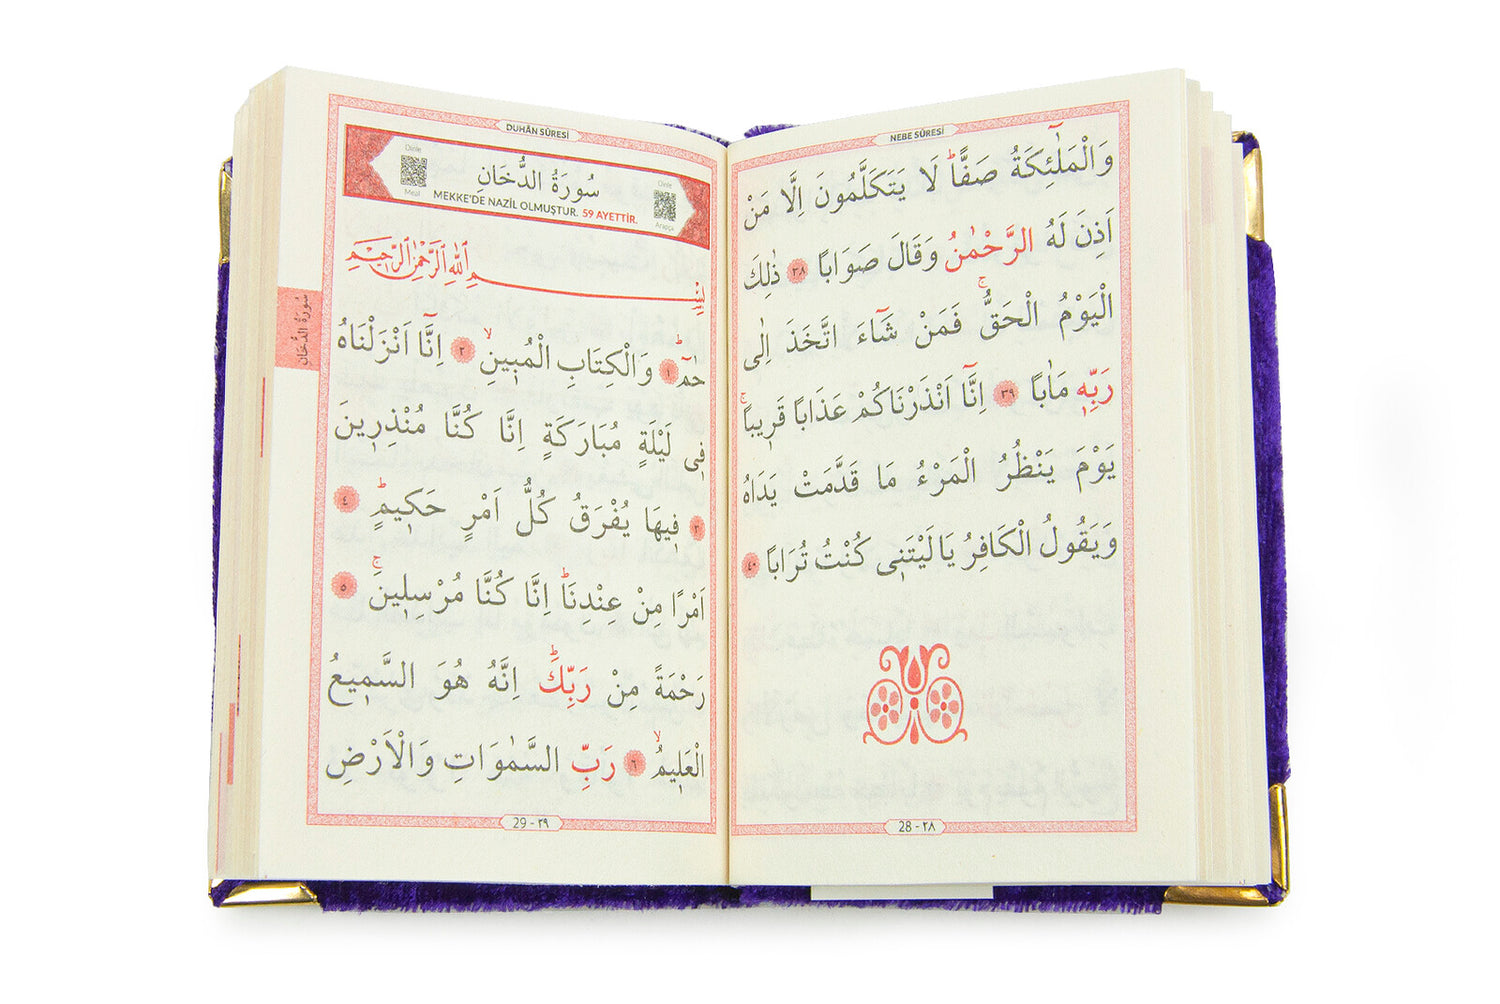 NEBE SÛRESİ
وَالْمَلٰٓئِكَةُ صَفًّاۜ لَا يَتَكَلَّمُونَ اِلَّا مَنْ
اَذِنَ لَهُ الرَّحْمٰنُ وَقَالَ صَوَابًا ٣٨ ذٰلِكَ
الْيَوْمُ الْحَقُّۚ فَمَنْ شَٓاءَ اتَّخَذَ اِلٰى
رَبِّه۪ مَاٰبًا ٣٩ اِنَّٓا اَنْذَرْنَاكُمْ عَذَابًا قَر۪يبًاۚ
يَوْمَ يَنْظُرُ الْمَرْءُ مَا قَدَّمَتْ يَدَاهُ
وَيَقُولُ الْكَافِرُ يَا لَيْتَن۪ي كُنْتُ تُرَابًا ٤٠
28 - ٢٨
DUHÂN SÛRESİ
Dinle
Meal
سُورَةُ الدُّخَانِ
MEKKE'DE NAZİL OLMUŞTUR. 59 AYETTİR.
Dinle
Arapça
بِسْمِ اللّٰهِ الرَّحْمٰنِ الرَّح۪يمِ
حٰمٓۜ ١ وَالْكِتَابِ الْمُب۪ينِۙ ٢ اِنَّٓا اَنْزَلْنَاهُ
ف۪ي لَيْلَةٍ مُبَارَكَةٍ اِنَّا كُنَّا مُنْذِر۪ينَ
٣ ف۪يهَا يُفْرَقُ كُلُّ اَمْرٍ حَك۪يمٍۜ ٤
اَمْرًا مِنْ عِنْدِنَاۜ اِنَّا كُنَّا مُرْسِل۪ينَۚ ٥
رَحْمَةً مِنْ رَبِّكَۜ اِنَّهُ هُوَ السَّم۪يعُ
الْعَل۪يمُۙ ٦ رَبِّ السَّمٰوَاتِ وَالْاَرْضِ
29 - ٢٩
سُورَةُ الدُّخَانِ